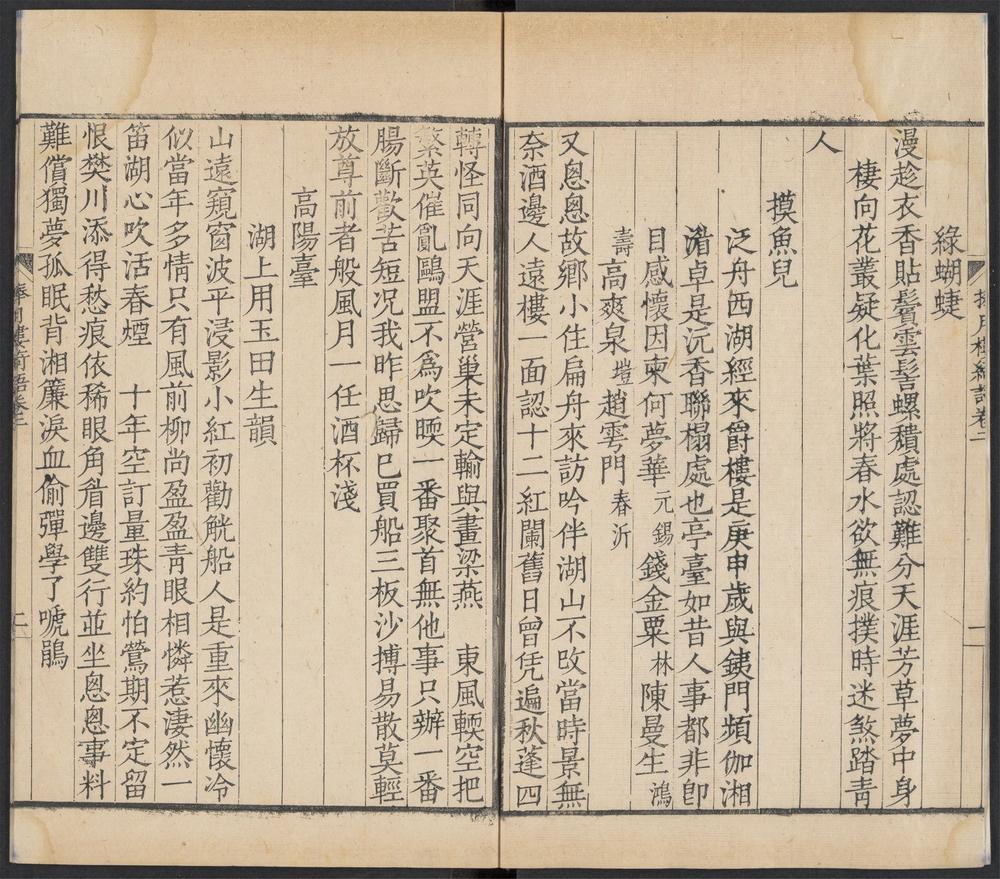 綠蝴蜨
漫趁衣香貼鬢雲髻螺穳處認難分天涯芳草夢中身
棲向花叢疑化葉照將春水欲無痕撲時迷煞踏青
人
摸魚兒
泛舟西湖經來爵樓是庚申歲與銕門頻伽湘
湝卓是沉香聯榻處也亭臺如昔人事都非卽
目感懷因柬何夢華元錫錢金粟林陳曼生鴻
壽高爽泉塏趙雩門春沂
又恖恖故鄉小住扁舟來訪吟伴湖山不改當時景無
柰酒邊人遠樓一面認十二紅闌舊日曾凭遍秋蓬四
轉怪同向天涯營巢未定輸與畫梁燕　東風輭空把
繁英催亂鷗盟不爲吹暝一番聚首無他事只辦一番
腸斷歡苦短况我昨思歸已買船三板沙搏易散莫輕
放尊前者般風月一任酒杯淺
高陽臺
湖上用玉田生韻
山遠窺窗波平浸影小紅初勸觥船人是重來幽懷冷
似當年多情只有風前柳尚盈盈靑眼相憐惹淒然一
笛湖心吹活春煙　十年空訂量珠約怕鶯期不定留
恨樊川添得愁痕依稀眼角眉邊雙行並坐恖恖事料
難償獨夢孤眠背湘簾淚血偷彈學了嗁鵑